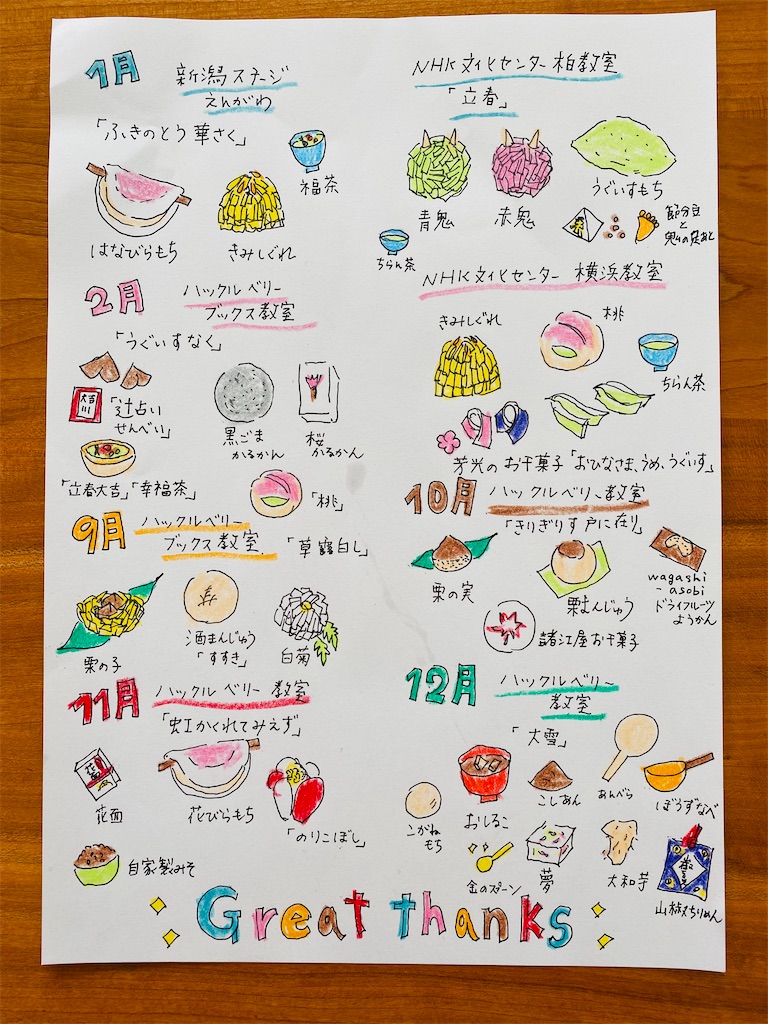 1月
新潟ステージ
えんがわ
「ふきのとう華さく」
福茶
はなびらもち
きみしぐれ
NHK文化センター柏教室
「立春」
青鬼
赤鬼
うぐいすもち
ちらん茶
節分豆
と
鬼の足あと
2月
ハックルベリー
ブックス教室
「うぐいすなく」
大吉
「辻占い
せんべい」
黒ごま
かるかん
桜
かるかん
「立春大吉」「幸福茶」
「桃」
NHK文化センター 横浜教室
きみしぐれ
桃
ちらん茶
芳光のお干菓子「おひなさま、うめ、うぐいす」
9月
ハックルベリー
ブックス教室
「草露白し」
栗の子
酒まんじゅう
「すすき」
白菊
10月
ハックルベリー教室
「きりぎりす戸に在り」
栗の実
栗まんじゅう
wagashi
-asobi
ドライフルーツ
ようかん
諸江屋お干菓子
11月
ハックルベリー 教室
「虹かくれてみえず」
花面
花びらもち
「のりこぼし」
自家製みそ
12月
ハックルベリー
教室
「大雪」
こがね
もち
おしるこ
こしあん
あんべら
ぼうずなべ
金のスプーン
夢
大和芋
山椒ちりめん
Great thanks